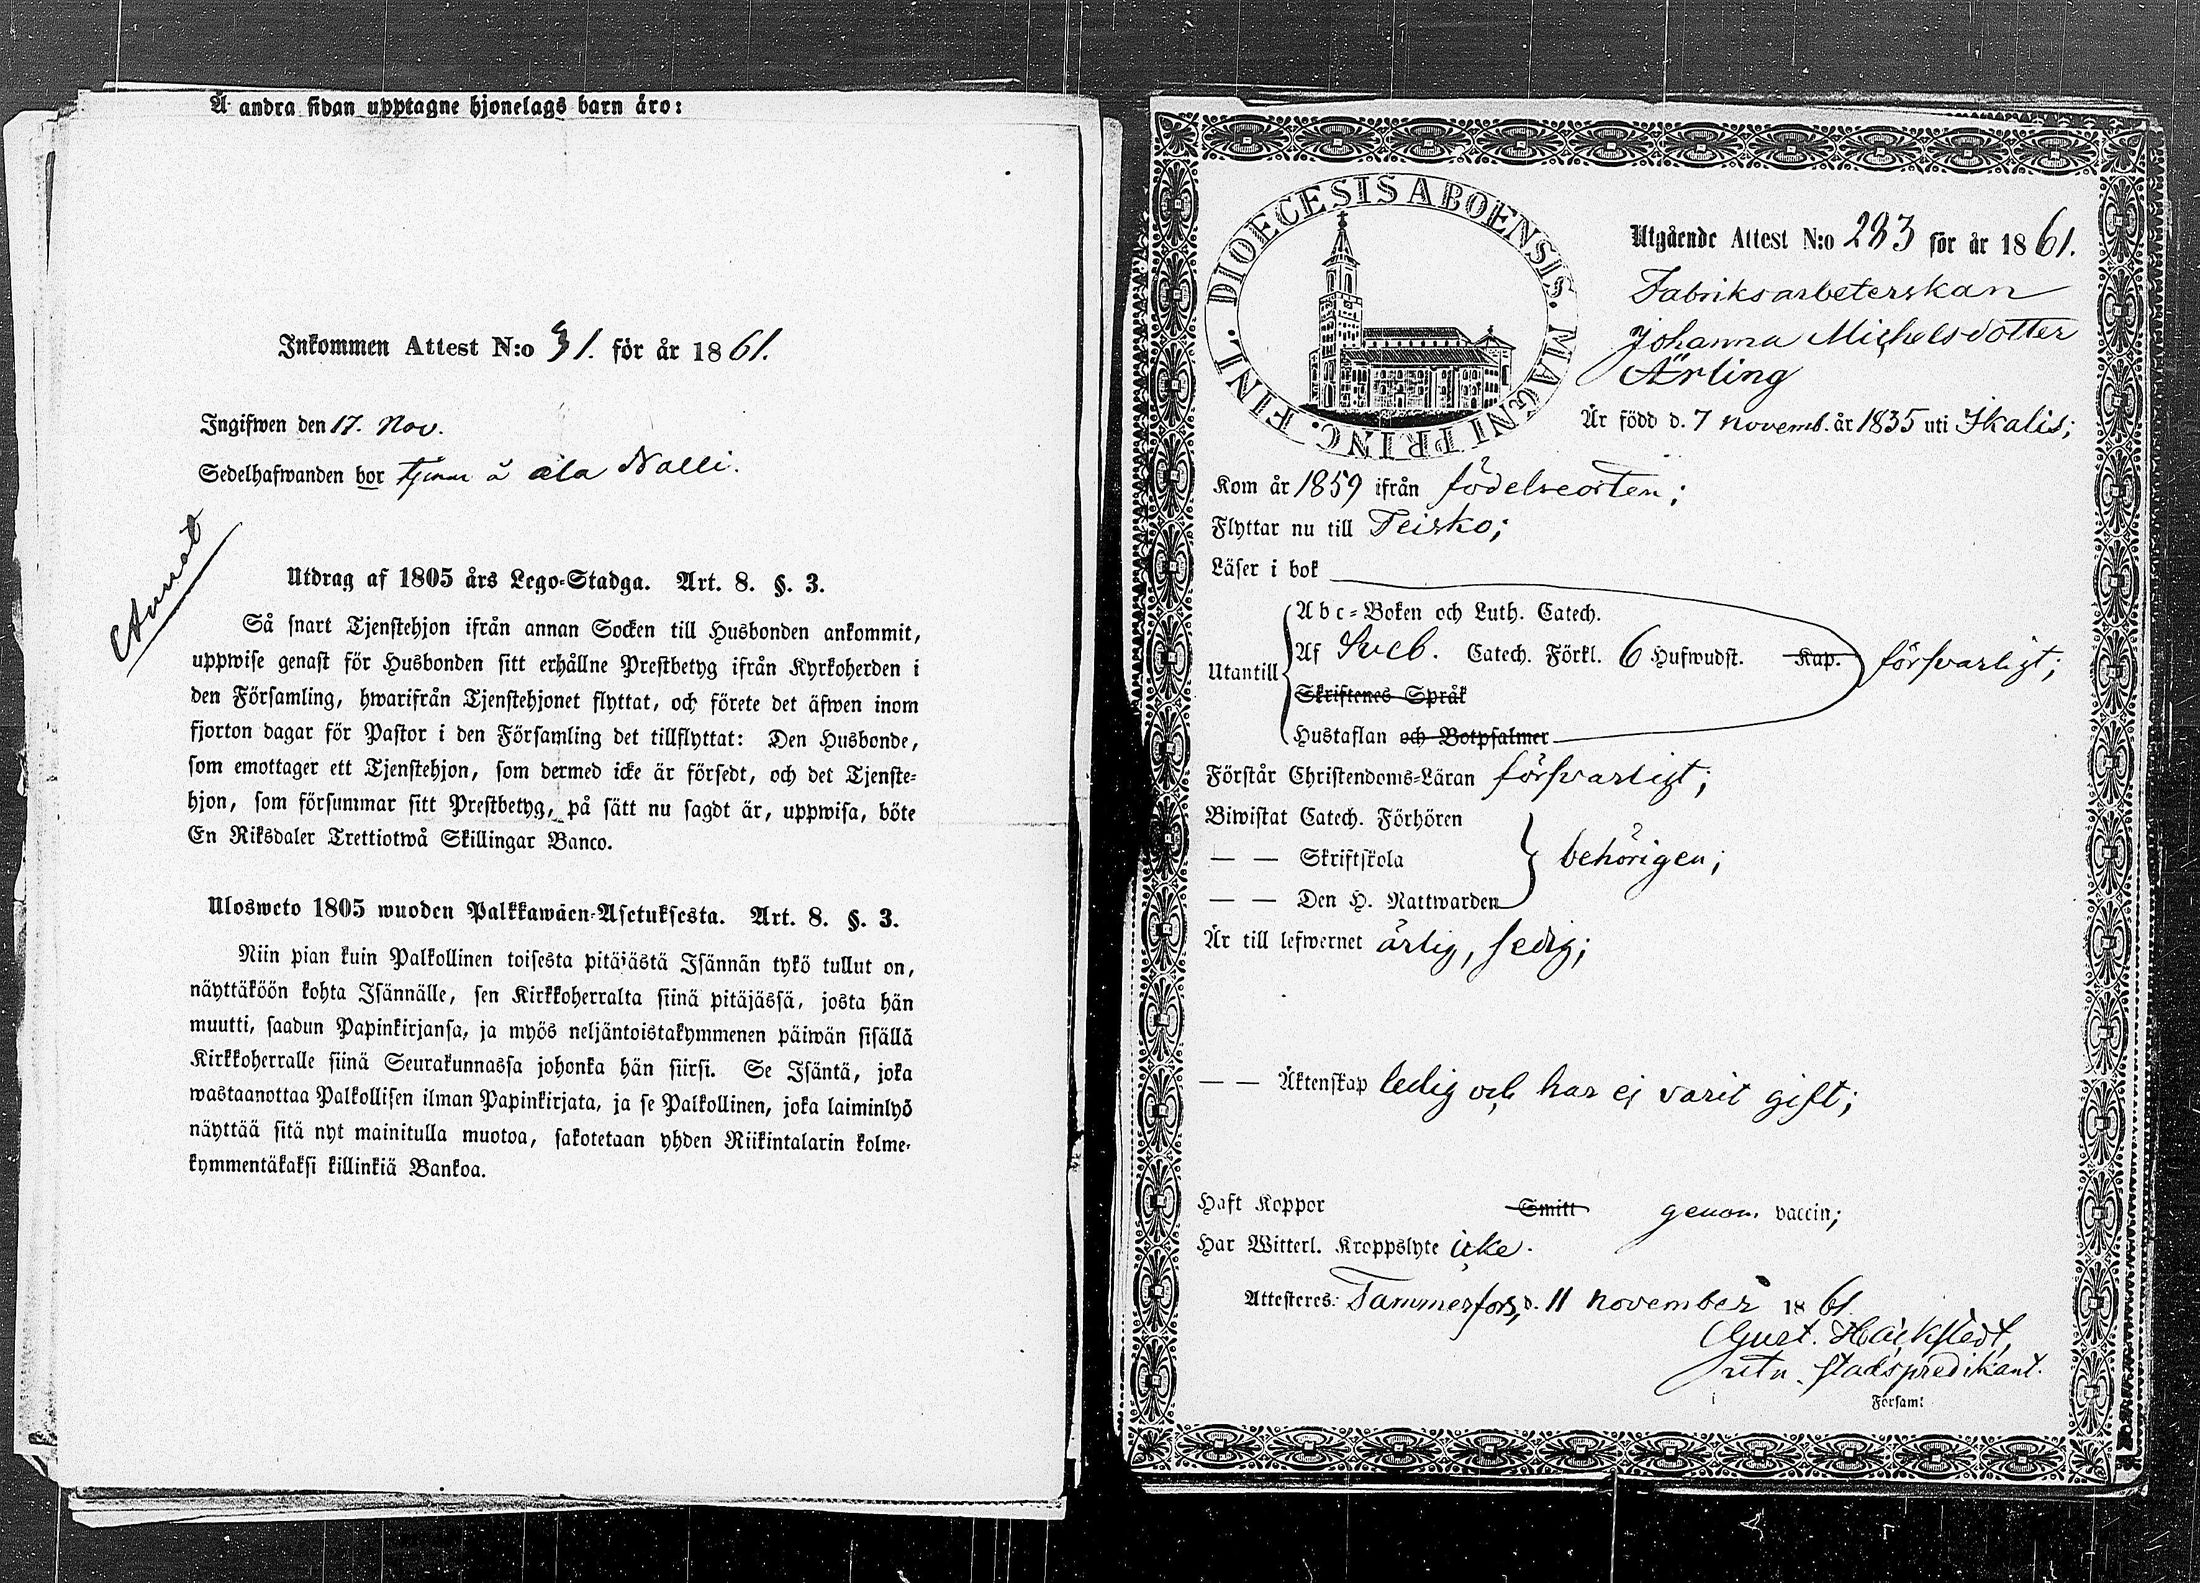 Å andra sidan upptagne hjonelags barn äro:
Inkommen Attest N:o 31. för år 1861.
Ingifwen den 17. Nov.
Sedelhafwanden bor tjenar å ala Nalli.
Utdrag af 1805 års Lego-Stadga. Art. 8. §. 3.
Så snart Tjenstehjon ifrån annan Socken till Husbonden ankommit,
uppwise genast för Husbonden sitt erhållne Prestbetyg ifrån Kyrkoherden i
den Församling, hwarifrån Tjenstehjonet flyttat, och förete det äfwen inom
fjorton dagar för Pastor i den Församling det tillflyttat: Den Husbonde,
som emottager ett Tjenstehjon, som dermed icke är försedt, och det Tjenste-
hjon, som försummar sitt Prestbetyg, på sätt nu sagdt är, uppwisa, böte
En Riksdaler Trettiotwå Skillingar Banco.
Ulosweto 1805 wuoden Palkkawäen-Asetuksesta. Art. 8. §. 3.
Niin pian kuin Palkollinen toisesta pitäjästä Isännän tykö tullut on,
näyttäköön kohta Isännälle, sen Kirkkoherralta siinä pitäjässä, josta hän
muutti, saadun Papinkirjansa, ja myös neljäntoistakymmenen päiwän sisällä
Kirkkoherralle siinä Seurakunnassa johonka hän siirsi. Se Isäntä, joka
wastaanottaa Palkollisen ilman Papinkirjata, ja se Palkollinen, joka laiminlyö
näyttää sitä nyt mainitulla muotoa, sakotetaan yhden Riikintalarin kolme-
kymmentäkaksi killinkiä Bankoa.
DIOECESIS ABOENSIS. MAGNI PRINC. FINL.
Utgående Attest N:o 283 för år 1861.
Fabriksarbeterskan
Johanna Michelsdotter
Ärling
Är född d. 7 novemb. år 1835 uti Ikalis;
Kom år 1859 ifrån födelseorten;
Flyttar nu till Teisko;
Läser i bok
Utantill
Abc-Boken och Luth. Catech.
Af Sveb. Catech. Förkl. 6 Hufwudst. Kap. försvarligt;
Skriftenes Språk
Hustaflan och Botpsalmer
Förstår Christendoms-Läran försvarligt;
Biwistat Catech. Förhören
— — Skriftskola behörigen;
— — Den H. Nattwarden
Är till lefwernet ärlig, sedig;
— — Äktenskap ledig och har ej varit gift;
Haft Koppor Smitt genom vaccin;
Har Witterl. Kroppslyte icke.
Attesteres: Tammerfors, d. 11 november 1861.
Gust. Häckstedt,
stadspredikant.
Församl